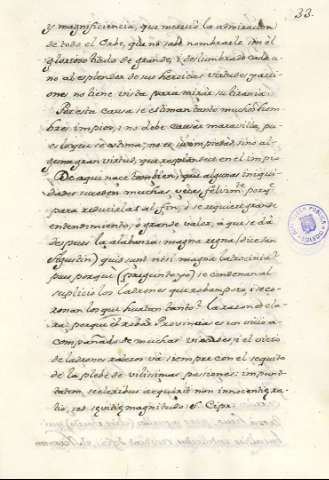 33.
y magnificiencia, que mereció la admiracion
de todo el Orbe, que no sabe nombrarle sin el
glorioso titulo de grande, y deslumbrado cada u
no al esplendor de sus heroicas virtudes y acci
ones no tiene vista para mirar su tirania.
Por esta causa se estiman tanto muchos hom
bres impios, i no debe causar maravilla, pu
es lo que se estima, no es su impiedad, sino al
guna gran virtud, que resplandece en el impio
De aqui nace tambien, que algunas iniqui
dades suceden muchas veces felizm.te porq.
para reducirlas al fin, ó se requiere grande
entendimiento, ó grande valor, á que se dá
despues la alabanza: magna regna (dice San
Agustin) quid sunt nisi magna latrocinia?
pues porque (pregunta yo) se condenan al
suplicio los ladrones que roban poco, i se co
ronan los que hurtan tanto? La razon es cla
ra; porque el robar Provincias es un vicio a
compañado de muchas virtudes; i el vicio
de ladrones rateros vá siempre con el sequito
de la plebe de vilisimas pasiones: impuni
tatem, sceleribus acquirit non innocentiæ ra
tio, sed sævitiæ magnitudo. S. Cipr.